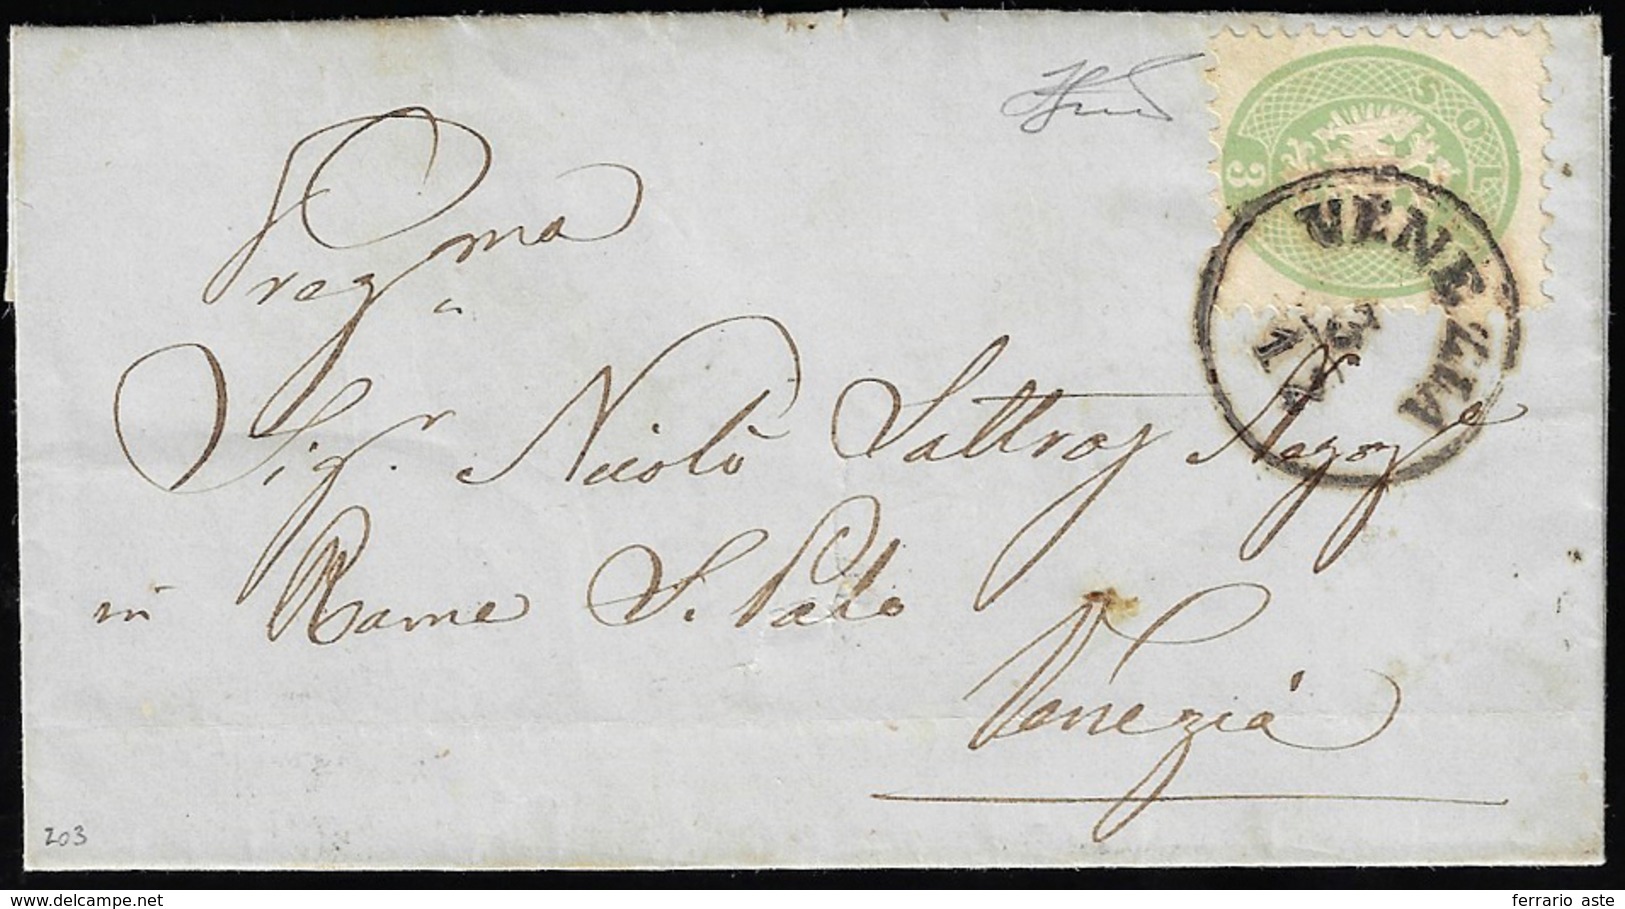 3 SOLDI
VENEZIA
Pregma
Sigr. Nicolò Sattraj Negoze
in Rame S. Polo
Venezia
203
delcampe.net
ferrario aste